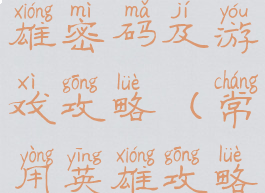 xióng mì mǎ jí yóu
雄密码及游
xì gōng lüè cháng
戏攻略（常
yòng yīng xióng gōng lüè
用英雄攻略